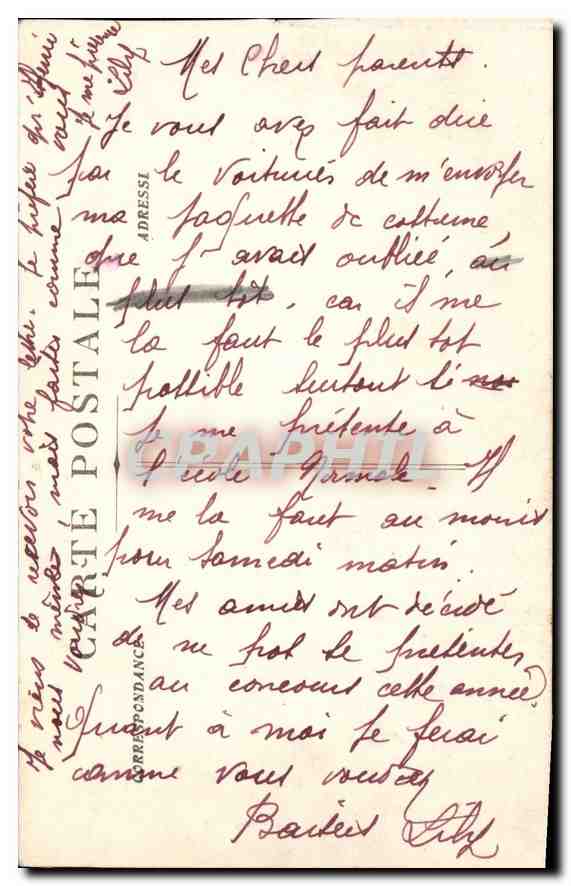 Mes Chers parents.
Je vous avez fait dire
par le voituriés de m'envoyer
ma jaquette de costume,
que j'avais oubliée, au
plus tôt, car il me
la faut le plus tot
possible surtout si
je me présente à
l'école Normale. Il
me la faut au moins
pour samedi matin.
Mes amies ont décidé
de ne pas se présenter
au concours cette année
Quant à moi je ferai
comme vous voudrez
Baisers Lily
Je viens de recevoir votre lettre. Je préfère qu'Henri
nous mène mais faites comme vous
voudrez
Je me présente
Lily
CARTE POSTALE
CORRESPONDANCE
ADRESSE
CPAPHIL